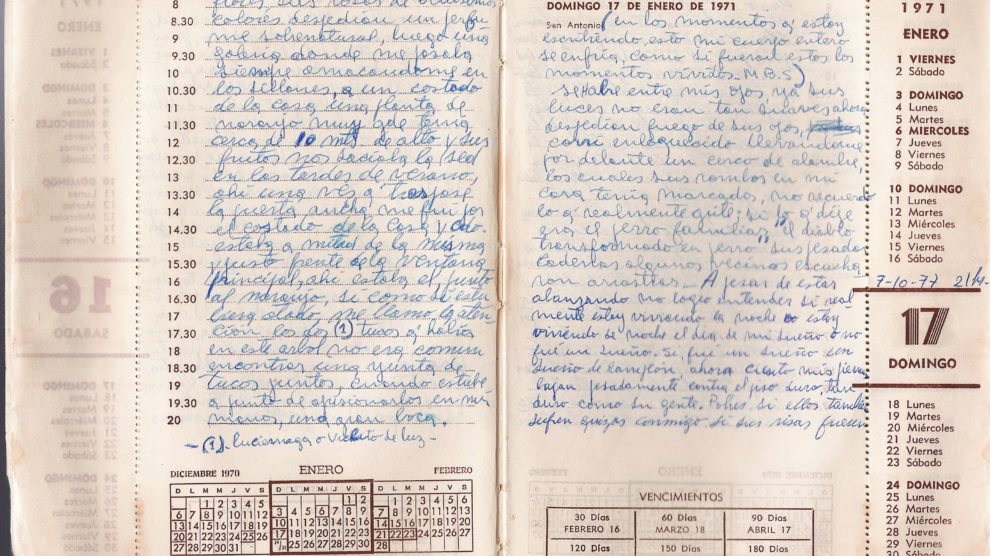 8 flores sus rosas de
8.30 colores despedian, un perfu
9 me sobrenatural, luego una
9.30 galeria donde me posaba
10 siempre amacandome en
10.30 los sillones, a un costado
11 de la casa una planta de
11.30 naranjo muy gde tenia
12 cerca de 10 mts de alto y sus
12.30 frutos nos saciaba la sed
13 en las tardes de verano,
13.30 ahi una ves q
14 la puerta ancha me fui por
14.30 el costado de la casa y cdo
15 estaba a mitad de la misma
15.30 y justo frente de la ventana
16 principal, ahi estaba el, junto
16.30 al naranjo, si como si estu
17 biera atado, me llamo la aten
17.30 ción los dos (1) tucos q' habia
18 en este arbol no era comun
18.30 encontrar una yunta de
19 tucos juntos, cuando estube
19.30 a punto de aprisionarlos en mis
20 manos, una gran boca
- (1). luciernaga o Vichito de luz -
DICIEMBRE 1970
D L M M J V S
1 2 3 4 5
6 7 8 9 10 11 12
13 14 15 16 17 18 19
20 21 22 23 24 25 26
27 28 29 30 31
ENERO
D L M M J V S
1 2
3 4 5 6 7 8 9
10 11 12 13 14 15 16
17 18 19 20 21 22 23
24/31 25 26 27 28 29 30
FEBRERO
D L M M J V S
1 2 3 4 5 6
7 8 9 10 11 12 13
14 15 16 17 18 19 20
21 22 23 24 25 26 27
28
DOMINGO 17 DE ENERO DE 1971
San Antonio
(en los momentos q' estoy
escribiendo, esto mi cuerpo entero
se enfria, como si fueran estos los
momentos vividos. M.B.S)
se habre entre mis ojos ya sus
luces no eran tan suaves ahora
despedian fuego de sus ojos,
corri enloquecido llevandome
por delante un cerco de alambre,
los cuales sus rombos en mi
cara tenia marcados, no recuerdo
lo q' realmente grite; si lo q' dije
era el perro familiar, "el diablo
transformado en perro" sus pesadas
cadenas algunos vecinos escucha
ron arrastrar - A pesar de estar
abanzando no logro entender si real
mente estoy viviendo la noche o estoy
viviendo de noche el dia de mi sueño o no
fue un sueño. Si, fue un sueño un
sueño de, ahora siento mis piernas
bajan pesadamente contra el piso duro, tan
duro como su gente. Pobres si ellos tambien
sufren quizas conmigo si sus risas fuesen
VENCIMIENTOS
30 Días FEBRERO 16
60 Días MARZO 18
90 Días ABRIL 17
120 Días
150 Días
180 Días
1971
ENERO
1 VIERNES
2 Sábado
3 DOMINGO
4 Lunes
5 Martes
6 MIERCOLES
7 Jueves
8 Viernes
9 Sábado
10 DOMINGO
11 Lunes
12 Martes
13 Miércoles
14 Jueves
15 Viernes
16 Sábado
7-10-77 21 hs.
17
DOMINGO
18 Lunes
19 Martes
20 Miércoles
21 Jueves
22 Viernes
23 Sábado
24 DOMINGO
25 Lunes
26 Martes
27 Miércoles
28 Jueves
29 Viernes
30 Sábado